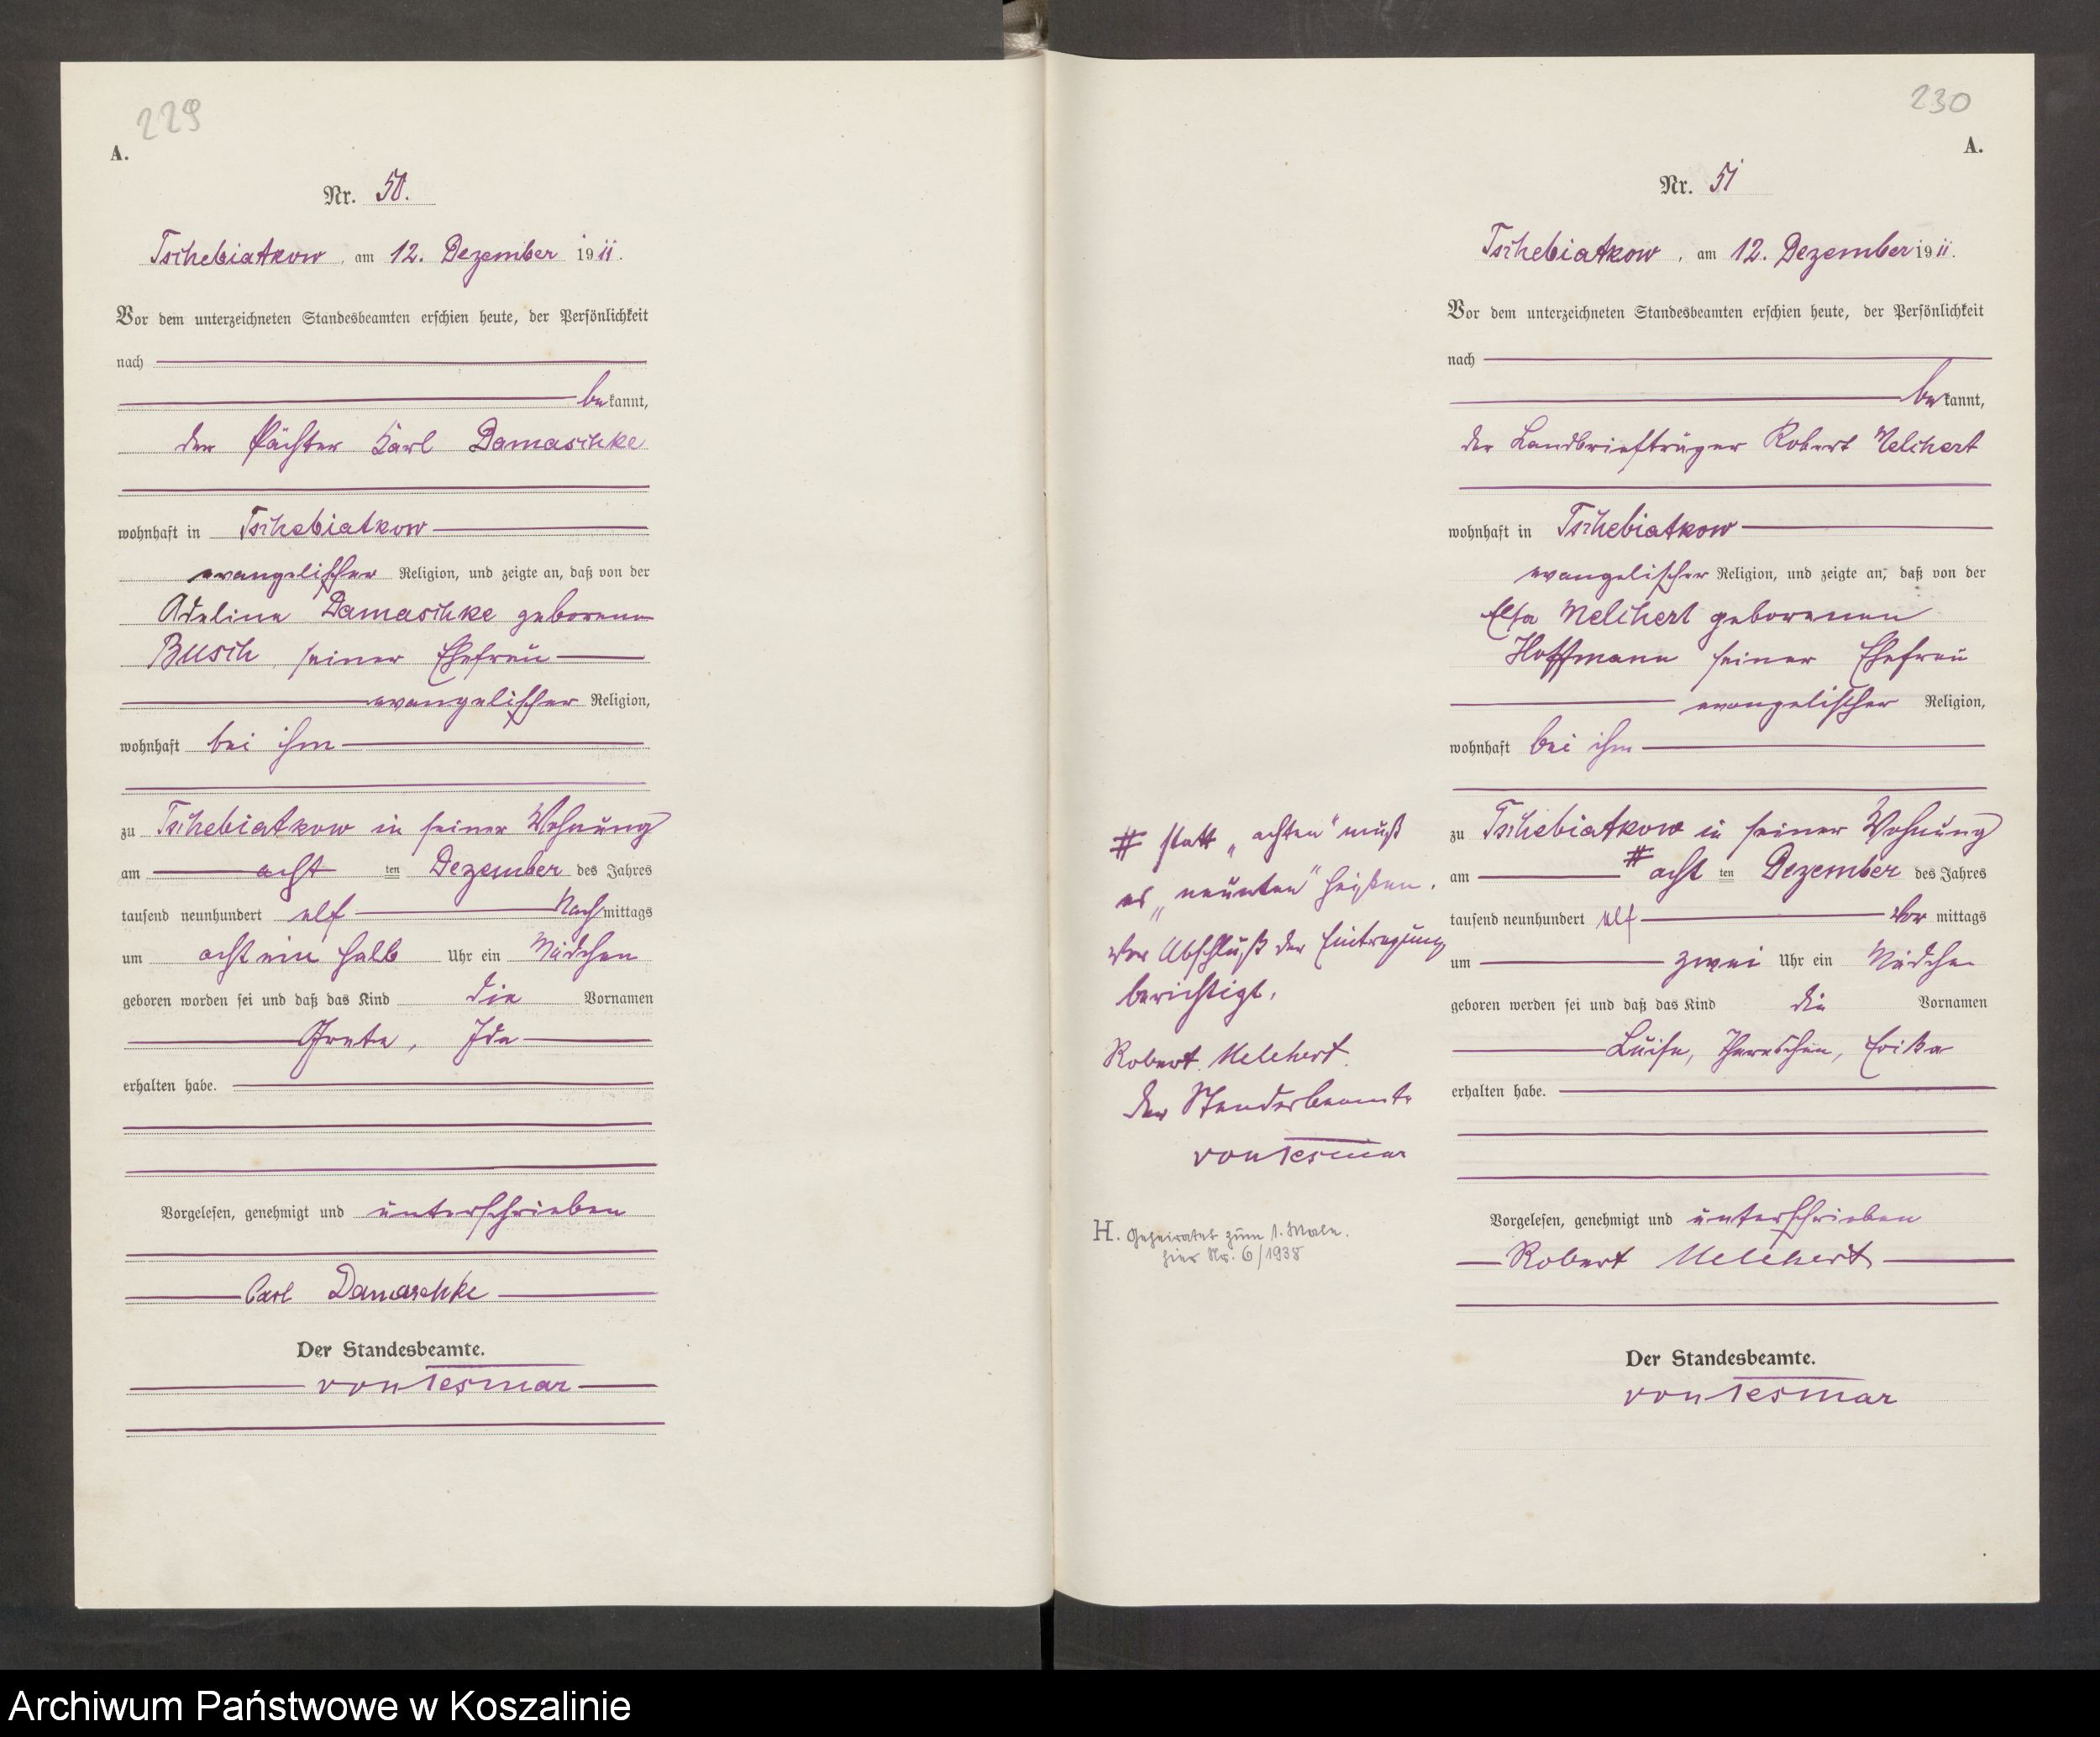 229
A.
Nr. 50.
Tschebiatkow, am 12. Dezember 1911.
Vor dem unterzeichneten Standesbeamten erschien heute, der Persönlichkeit
nach
bekannt,
der Pächter Karl Damaschke
wohnhaft in Tschebiatkow
evangelischer Religion, und zeigte an, daß von der
Adeline Damaschke geborene
Busch seiner Ehefrau
evangelischer Religion,
wohnhaft bei ihm
zu Tschebiatkow in seiner Wohnung
am acht ten Dezember des Jahres
tausend neunhundert elf Nachmittags
um acht ein halb Uhr ein Mädchen
geboren worden sei und daß das Kind die Vornamen
Grete, Ida
erhalten habe.
Vorgelesen, genehmigt und unterschrieben
Carl Damaschke
Der Standesbeamte.
von Tesmar
230
A.
Nr. 51
Tschebiatkow, am 12. Dezember 1911.
Vor dem unterzeichneten Standesbeamten erschien heute, der Persönlichkeit
nach
bekannt,
der Landbriefträger Robert Melchert
wohnhaft in Tschebiatkow
evangelischer Religion, und zeigte an, daß von der
Elsa Melchert geborenen
Hoffmann seiner Ehefrau
evangelischer Religion,
wohnhaft bei ihm
zu Tschebiatkow in seiner Wohnung
am # acht ten Dezember des Jahres
tausend neunhundert elf Vor mittags
um zwei Uhr ein Mädchen
geboren worden sei und daß das Kind die Vornamen
Luise, Erika
erhalten habe.
Vorgelesen, genehmigt und unterschrieben
Robert Melchert
Der Standesbeamte.
von Tesmar
# statt „achten" muß
es „neunten" heißen.
Vor Abschluß der Eintragung
berichtigt.
Robert Melchert.
Der Standesbeamte
von Tesmar
H. Geheiratet zum 1. Male.
hier Nr. 6/1938
Archiwum Państwowe w Koszalinie